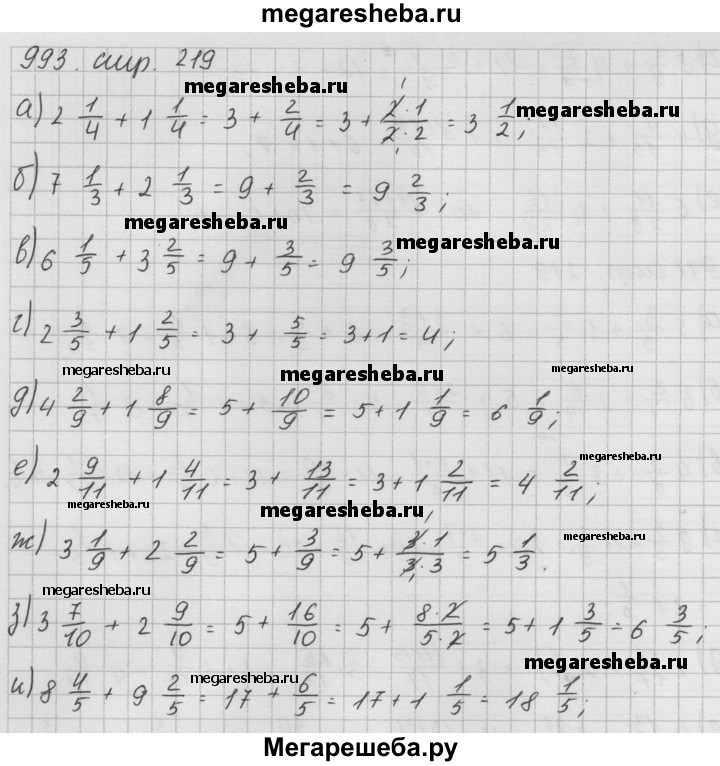 megaresheba.ru
993. стр. 219
megaresheba.ru
а) 2 1/4 + 1 1/4 = 3 + 2/4 = 3 + 2·1/2·2 = 3 1/2;
megaresheba.ru
б) 7 1/3 + 2 1/3 = 9 + 2/3 = 9 2/3;
megaresheba.ru
megaresheba.ru
в) 6 1/5 + 3 2/5 = 9 + 3/5 = 9 3/5;
г) 2 3/5 + 1 2/5 = 3 + 5/5 = 3 + 1 = 4;
megaresheba.ru megaresheba.ru megaresheba.ru
д) 4 2/9 + 1 8/9 = 5 + 10/9 = 5 + 1 1/9 = 6 1/9;
megaresheba.ru
е) 2 9/11 + 1 4/11 = 3 + 13/11 = 3 + 1 2/11 = 4 2/11;
megaresheba.ru megaresheba.ru
ж) 3 1/9 + 2 2/9 = 5 + 3/9 = 5 + 3·1/3·3 = 5 1/3.
megaresheba.ru
megaresheba.ru
з) 3 7/10 + 2 9/10 = 5 + 16/10 = 5 + 8·2/5·2 = 5 + 1 3/5 = 6 3/5;
megaresheba.ru
megaresheba.ru
и) 8 4/5 + 9 2/5 = 17 + 6/5 = 17 + 1 1/5 = 18 1/5;
Мегарешеба.ру